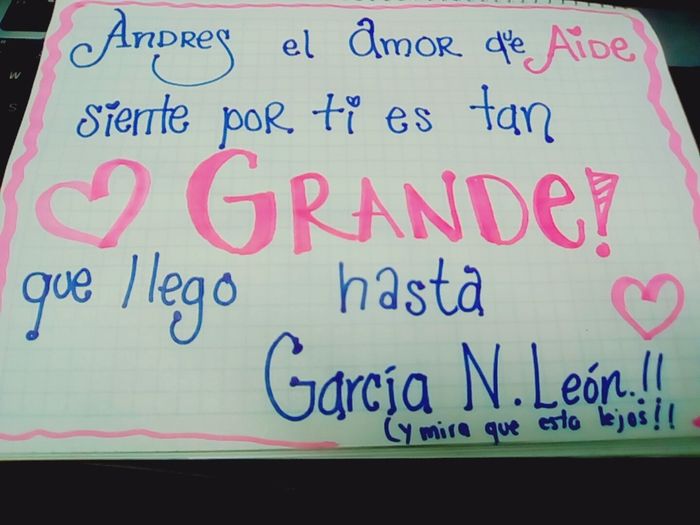 AnDRes el amoR que AiDe
siente poR ti es tan
GRANDe!
que llego hasta
García N. León.!!
(y mira que esta lejos!!